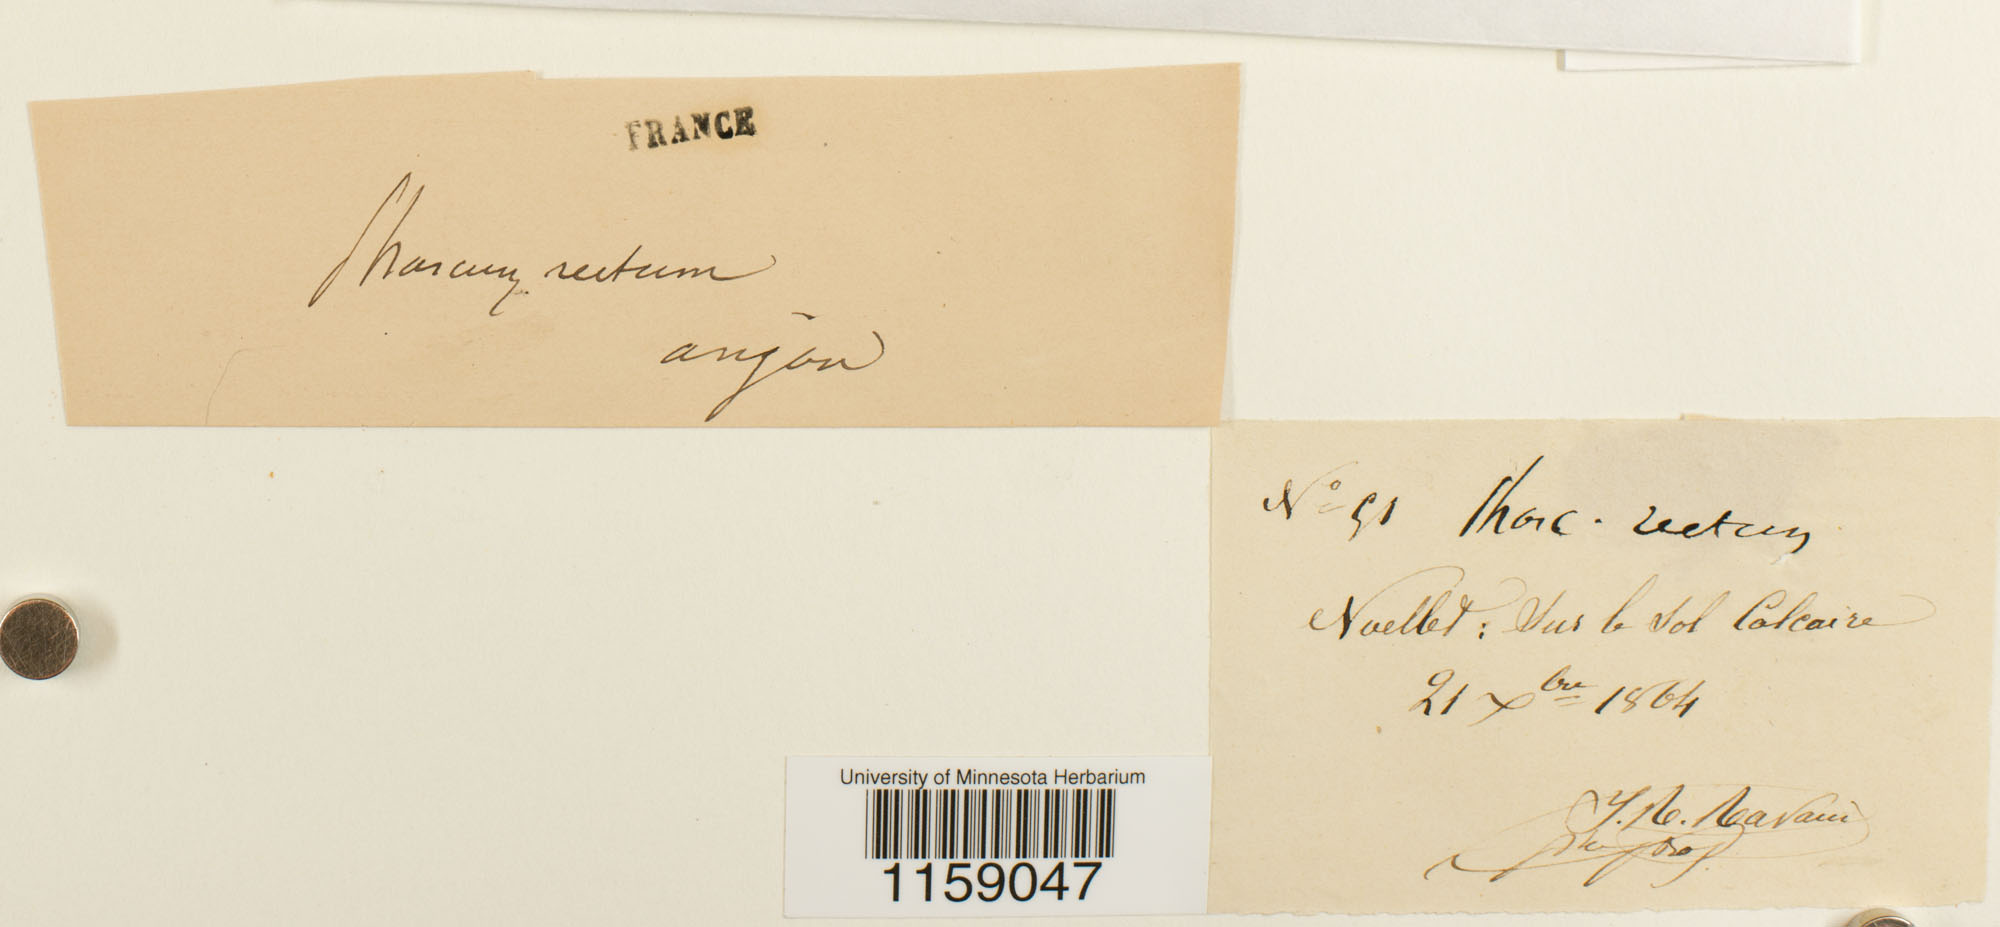 FRANCE
Phascum rectum
anjou
N° 91 Phasc. rectum
Noellet: Sur le Sol Calcaire
21 Xbre 1864
University of Minnesota Herbarium
1159047